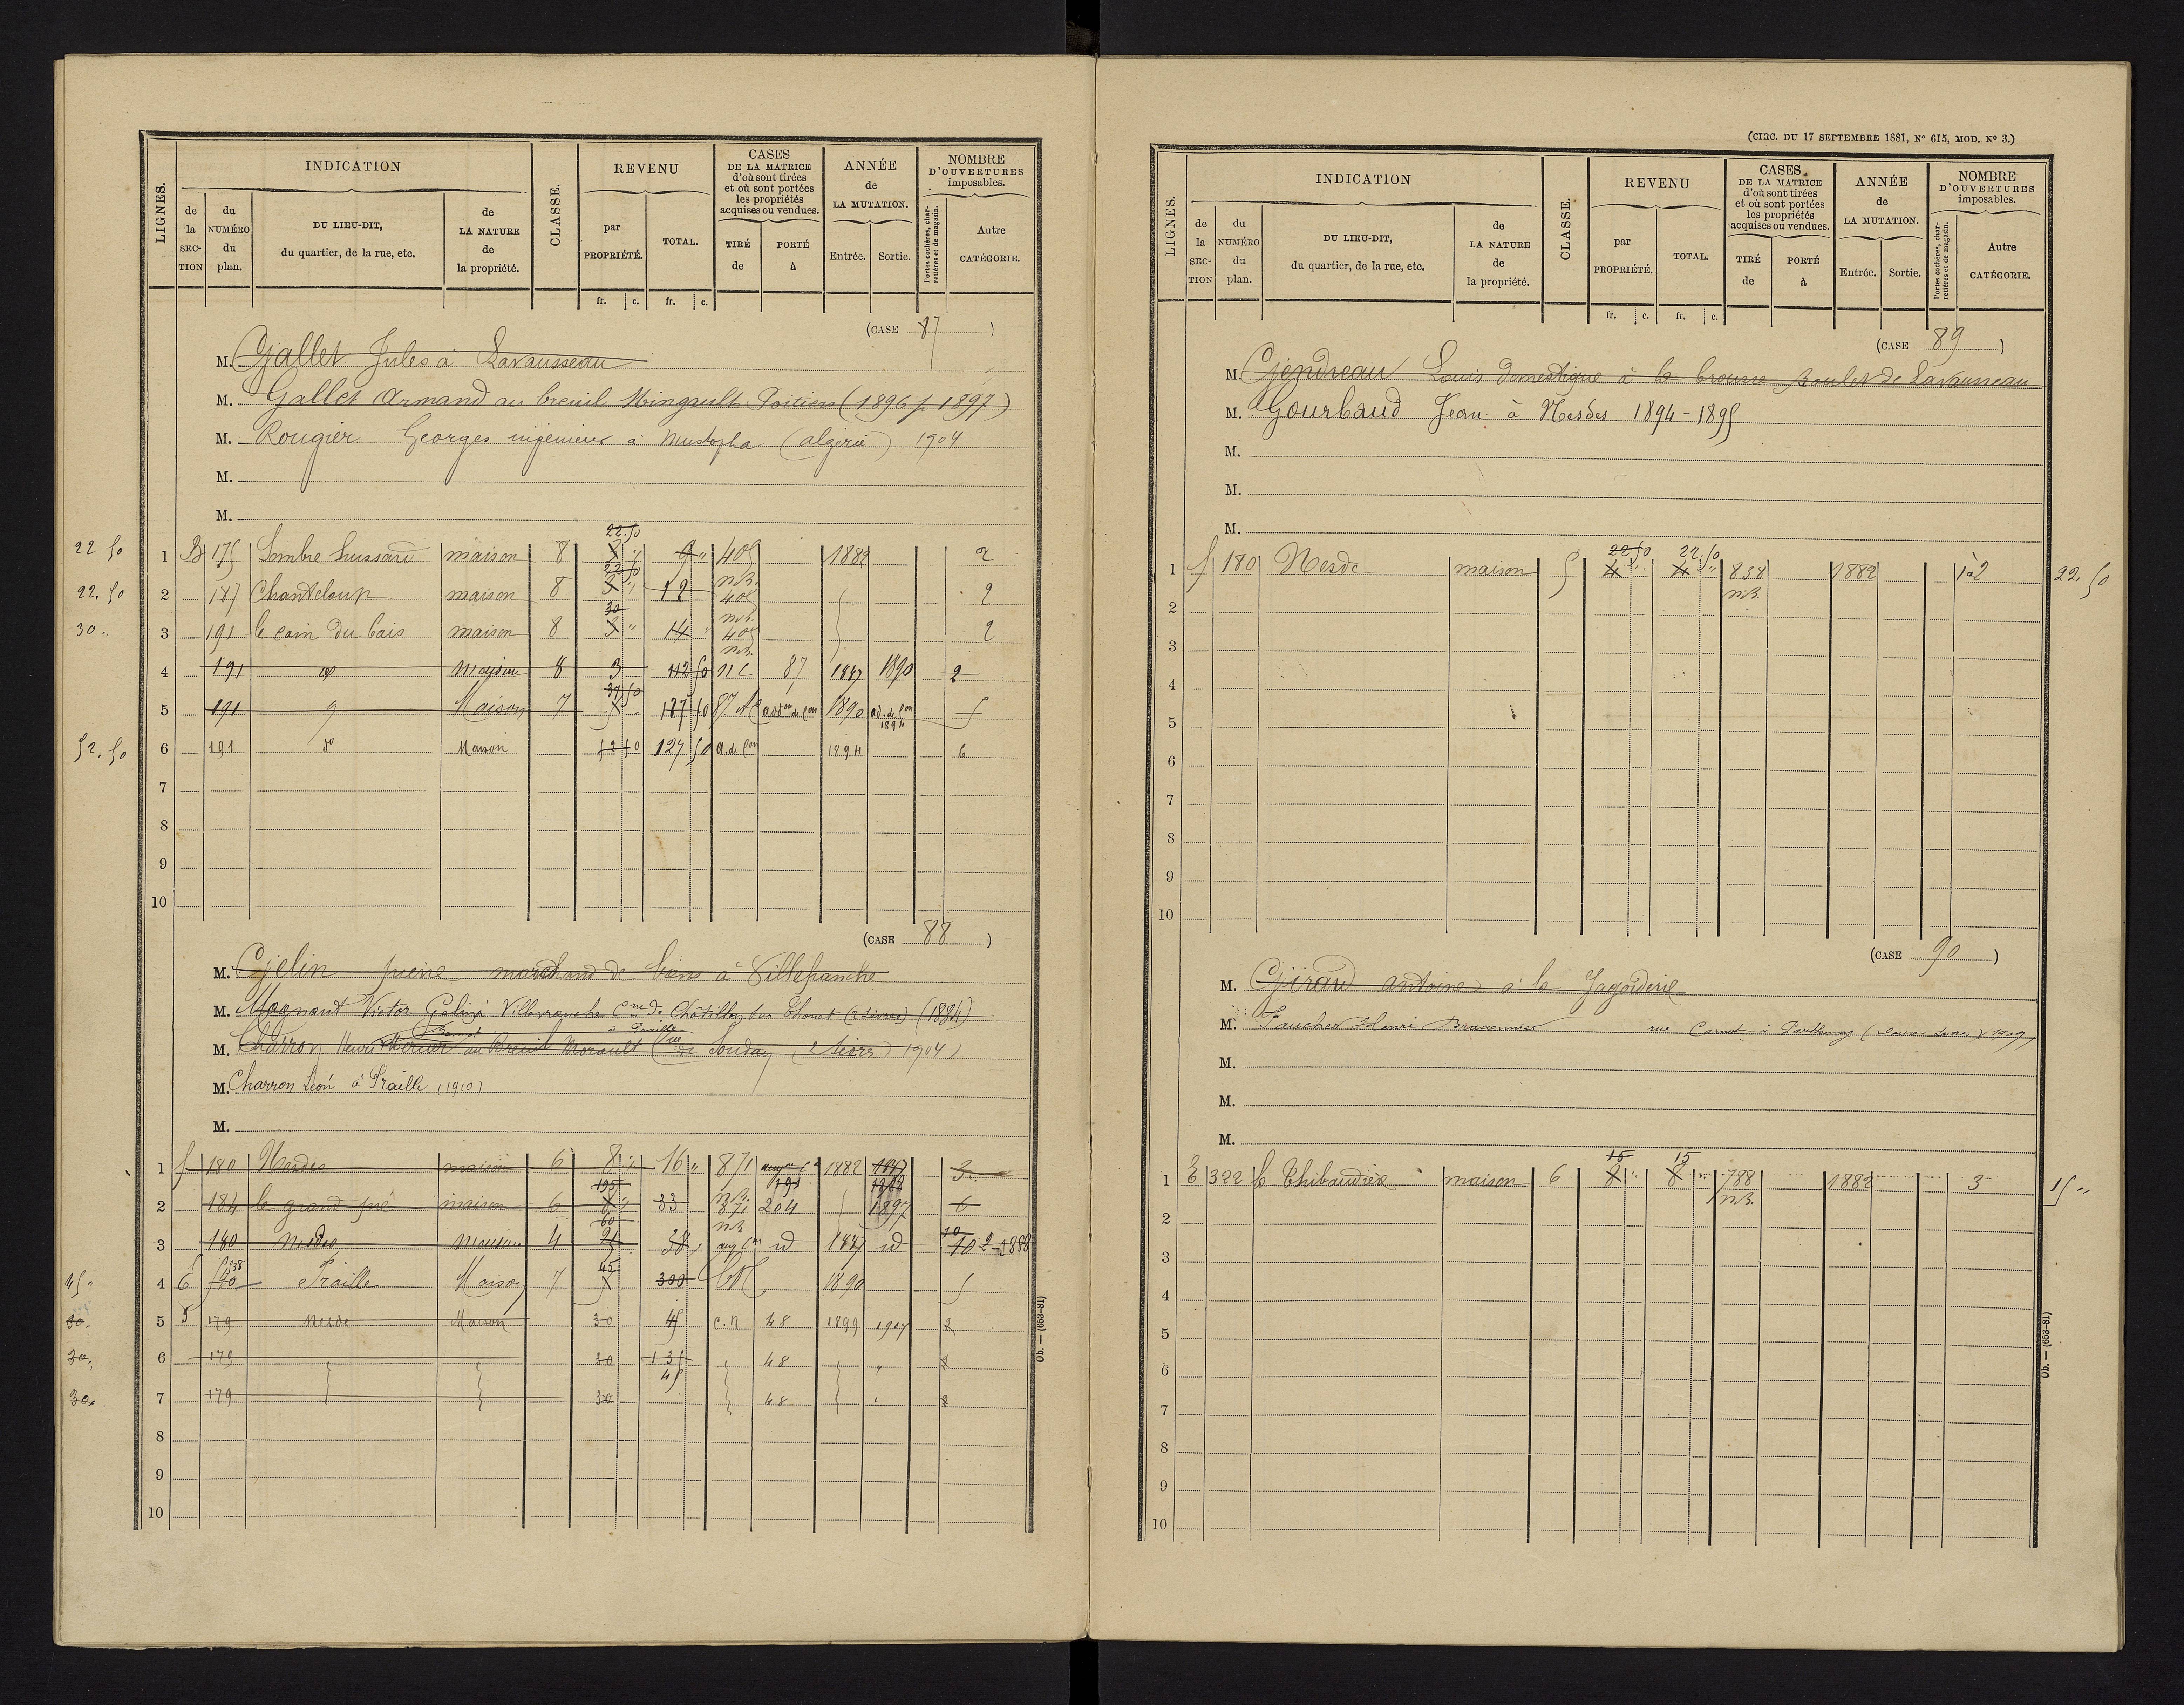 LIGNES.
INDICATION
de la SECTION
du NUMÉRO du plan.
DU LIEU-DIT, du quartier, de la rue, etc.
de LA NATURE de la propriété.
CLASSE.
REVENU
par PROPRIÉTÉ.
TOTAL.
fr. c. fr. c.
CASES DE LA MATRICE d'où sont tirées et où sont portées les propriétés acquises ou vendues.
TIRÉ de
PORTÉ à
ANNÉE de LA MUTATION.
Entrée. Sortie.
NOMBRE D'OUVERTURES imposables.
Portes cochères, charretières et de magasin.
Autre CATÉGORIE.
(CASE 87)
M. Gallet Jules à Lavausseau
M. Gallet Armand au breuil Mingault Poitiers (1896 p. 1897)
M. Rougier Georges ingénieur à Mustapha (algérie) 1904
M.
M.
22 50 1 B 175 Sombre hussard maison 8 22.50 3 " 9 " 405 1882 2
22.50 2 187 Chanteloup maison 8 22 50 3 " 12 n.B. 405 2
30 " 3 191 le coin du bois maison 8 30 " 14 n.B. 405 2
4 191 do maison 8 3 112 50 n C 87 1887 1890 2
n.B.
5 191 do Maison 7 37.50 127 50 87 addon de con 1890 ad. de con 1894 5
52.50 6 191 do Maison 52 50 127 50 a.d. con 1894 6
7
8
9
10
(CASE 88)
M. Gelin pierre marchand de biens à Villefranche
M. Magnant Victor Gelin à Villefranche Cne de Chatillon sur Thouet (2 Sèvres) (1884)
M. Charron Henri au Breuil Morault de Soudan (2 Sèvres) 1904
à Praille
M. Charron Léon à Praille (1910)
M.
1 f 180 Nesdes maison 6 8 " 16 " 871 1882 3
2 184 le grand pré maison 6 195 33 n.B. 871 204 1897 6
3 180 Nesdes maison 4 60 38 n.B. aug con id 1887 id 10 2 - 1888
45 " 4 E Praille Maison 7 45 300 CN 1890 5
30. 5 5 179 Nesde Maison 30 45 c.n 48 1899 1907 2
30. 6 179 30 131 48 2
45
30. 7 179 30 48 2
8
9
10
Ob. — (653-81)
(CIRC. DU 17 SEPTEMBRE 1881, Nº 615, MOD. Nº 3.)
LIGNES.
INDICATION
de la SECTION
du NUMÉRO du plan.
DU LIEU-DIT, du quartier, de la rue, etc.
de LA NATURE de la propriété.
CLASSE.
REVENU
par PROPRIÉTÉ.
TOTAL.
fr. c. fr. c.
CASES DE LA MATRICE d'où sont tirées et où sont portées les propriétés acquises ou vendues.
TIRÉ de
PORTÉ à
ANNÉE de LA MUTATION.
Entrée. Sortie.
NOMBRE D'OUVERTURES imposables.
Portes cochères, charretières et de magasin.
Autre CATÉGORIE.
(CASE 89)
M. Gendreau Louis domestique à la brousse Boulet de Lavausseau
M. Gourbaud Jean à Nesdes 1894-1895
M.
M.
M.
1 f 180 Nesde maison 5 22 50 4 " 22.50 4 " 838 1882 1 à 2 22.50
n.B.
2
3
4
5
6
7
8
9
10
(CASE 90)
M. Girard antoine à la Jagaiderie
M. Faucher Henri Braconnier rue Carnot à Parthenay (Deux-Sèvres) 1909
M.
M.
M.
1 E 322 la Thibaudière maison 6 15 8 " 15 8 " 788 1882 3 15 "
n.B.
2
3
4
5
6
7
8
9
10
Ob. — (653-81)